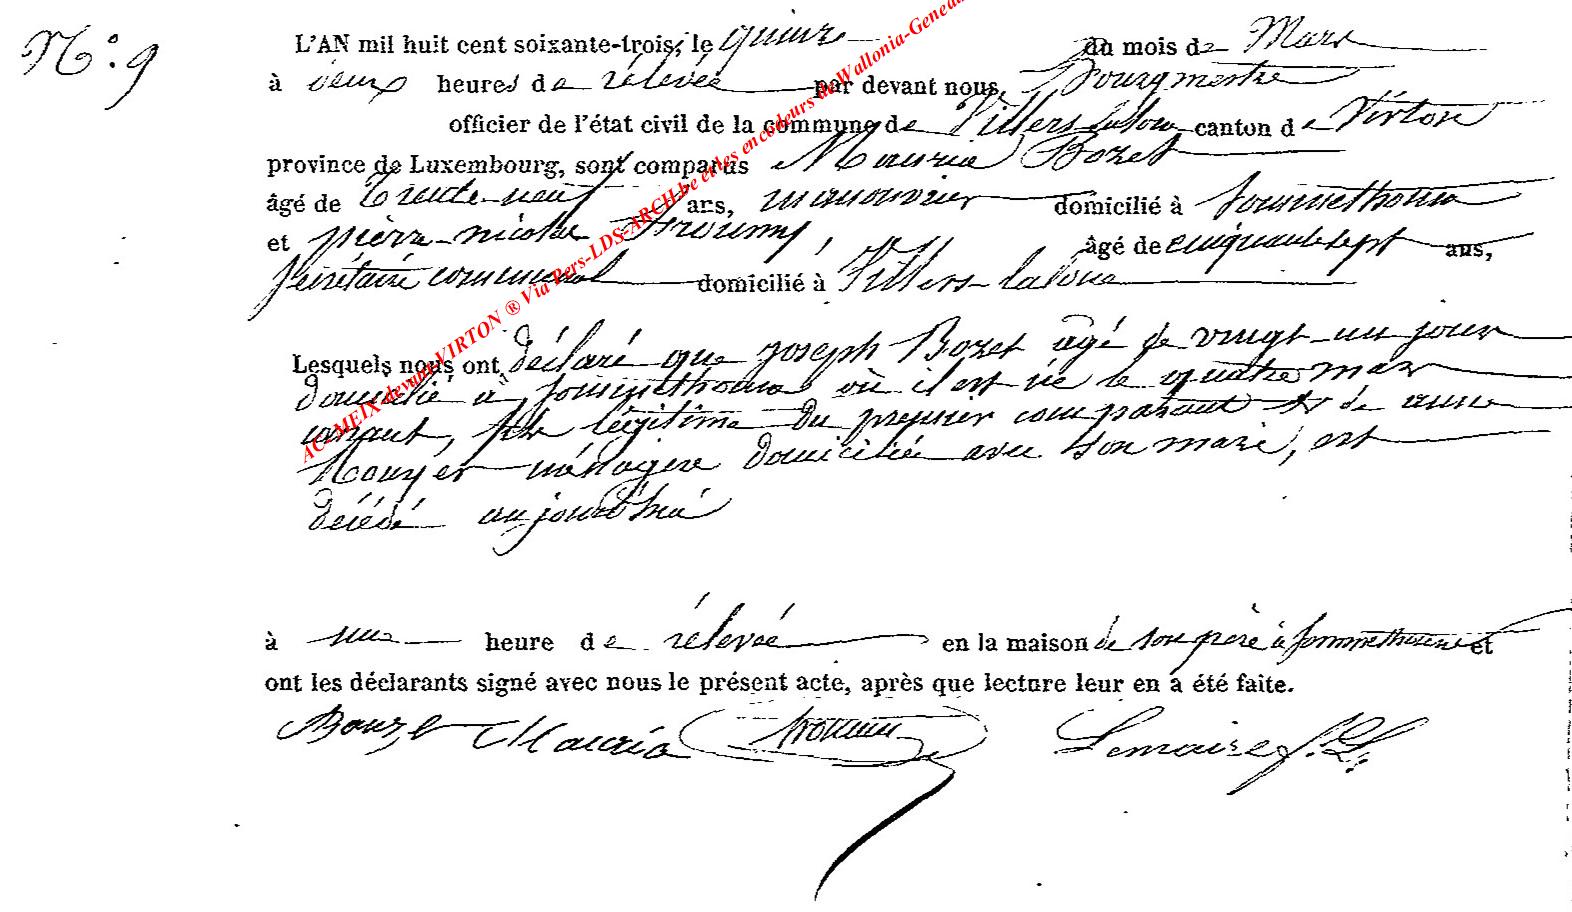 N.° 9
L'AN mil huit cent soixante-trois, le quinze du mois de Mars
à deux heures de rélevée par devant nous, Bourgmestre
officier de l'état civil de la commune de Villers-laloue canton de Virton
province de Luxembourg, sont comparus Mauria Bozet
âgé de trente-neuf ans, manouvrier domicilié à Sommethonne
et pierre-nicolas âgé de cinquante sept ans,
secrétaire communal domicilié à Villers-laloue
Lesquels nous ont déclaré que joseph Bozet agé de vingt-un jour
domicilié à Sommethonne où il est né le quatre mars
courant, fils légitime du premier comparant et de anne
ménagère domiciliée avec son mari, est
décédé aujourd'hui
à une heure de rélevée en la maison de son père à sommethonne et
ont les déclarants signé avec nous le présent acte, après que lecture leur en a été faite.
Bouzet Mauria Lemaire f. L.
AC-MEIX devant VIRTON ® Via Pers-LDS-ARCH.be et les encodeurs de Wallonia-Genealo